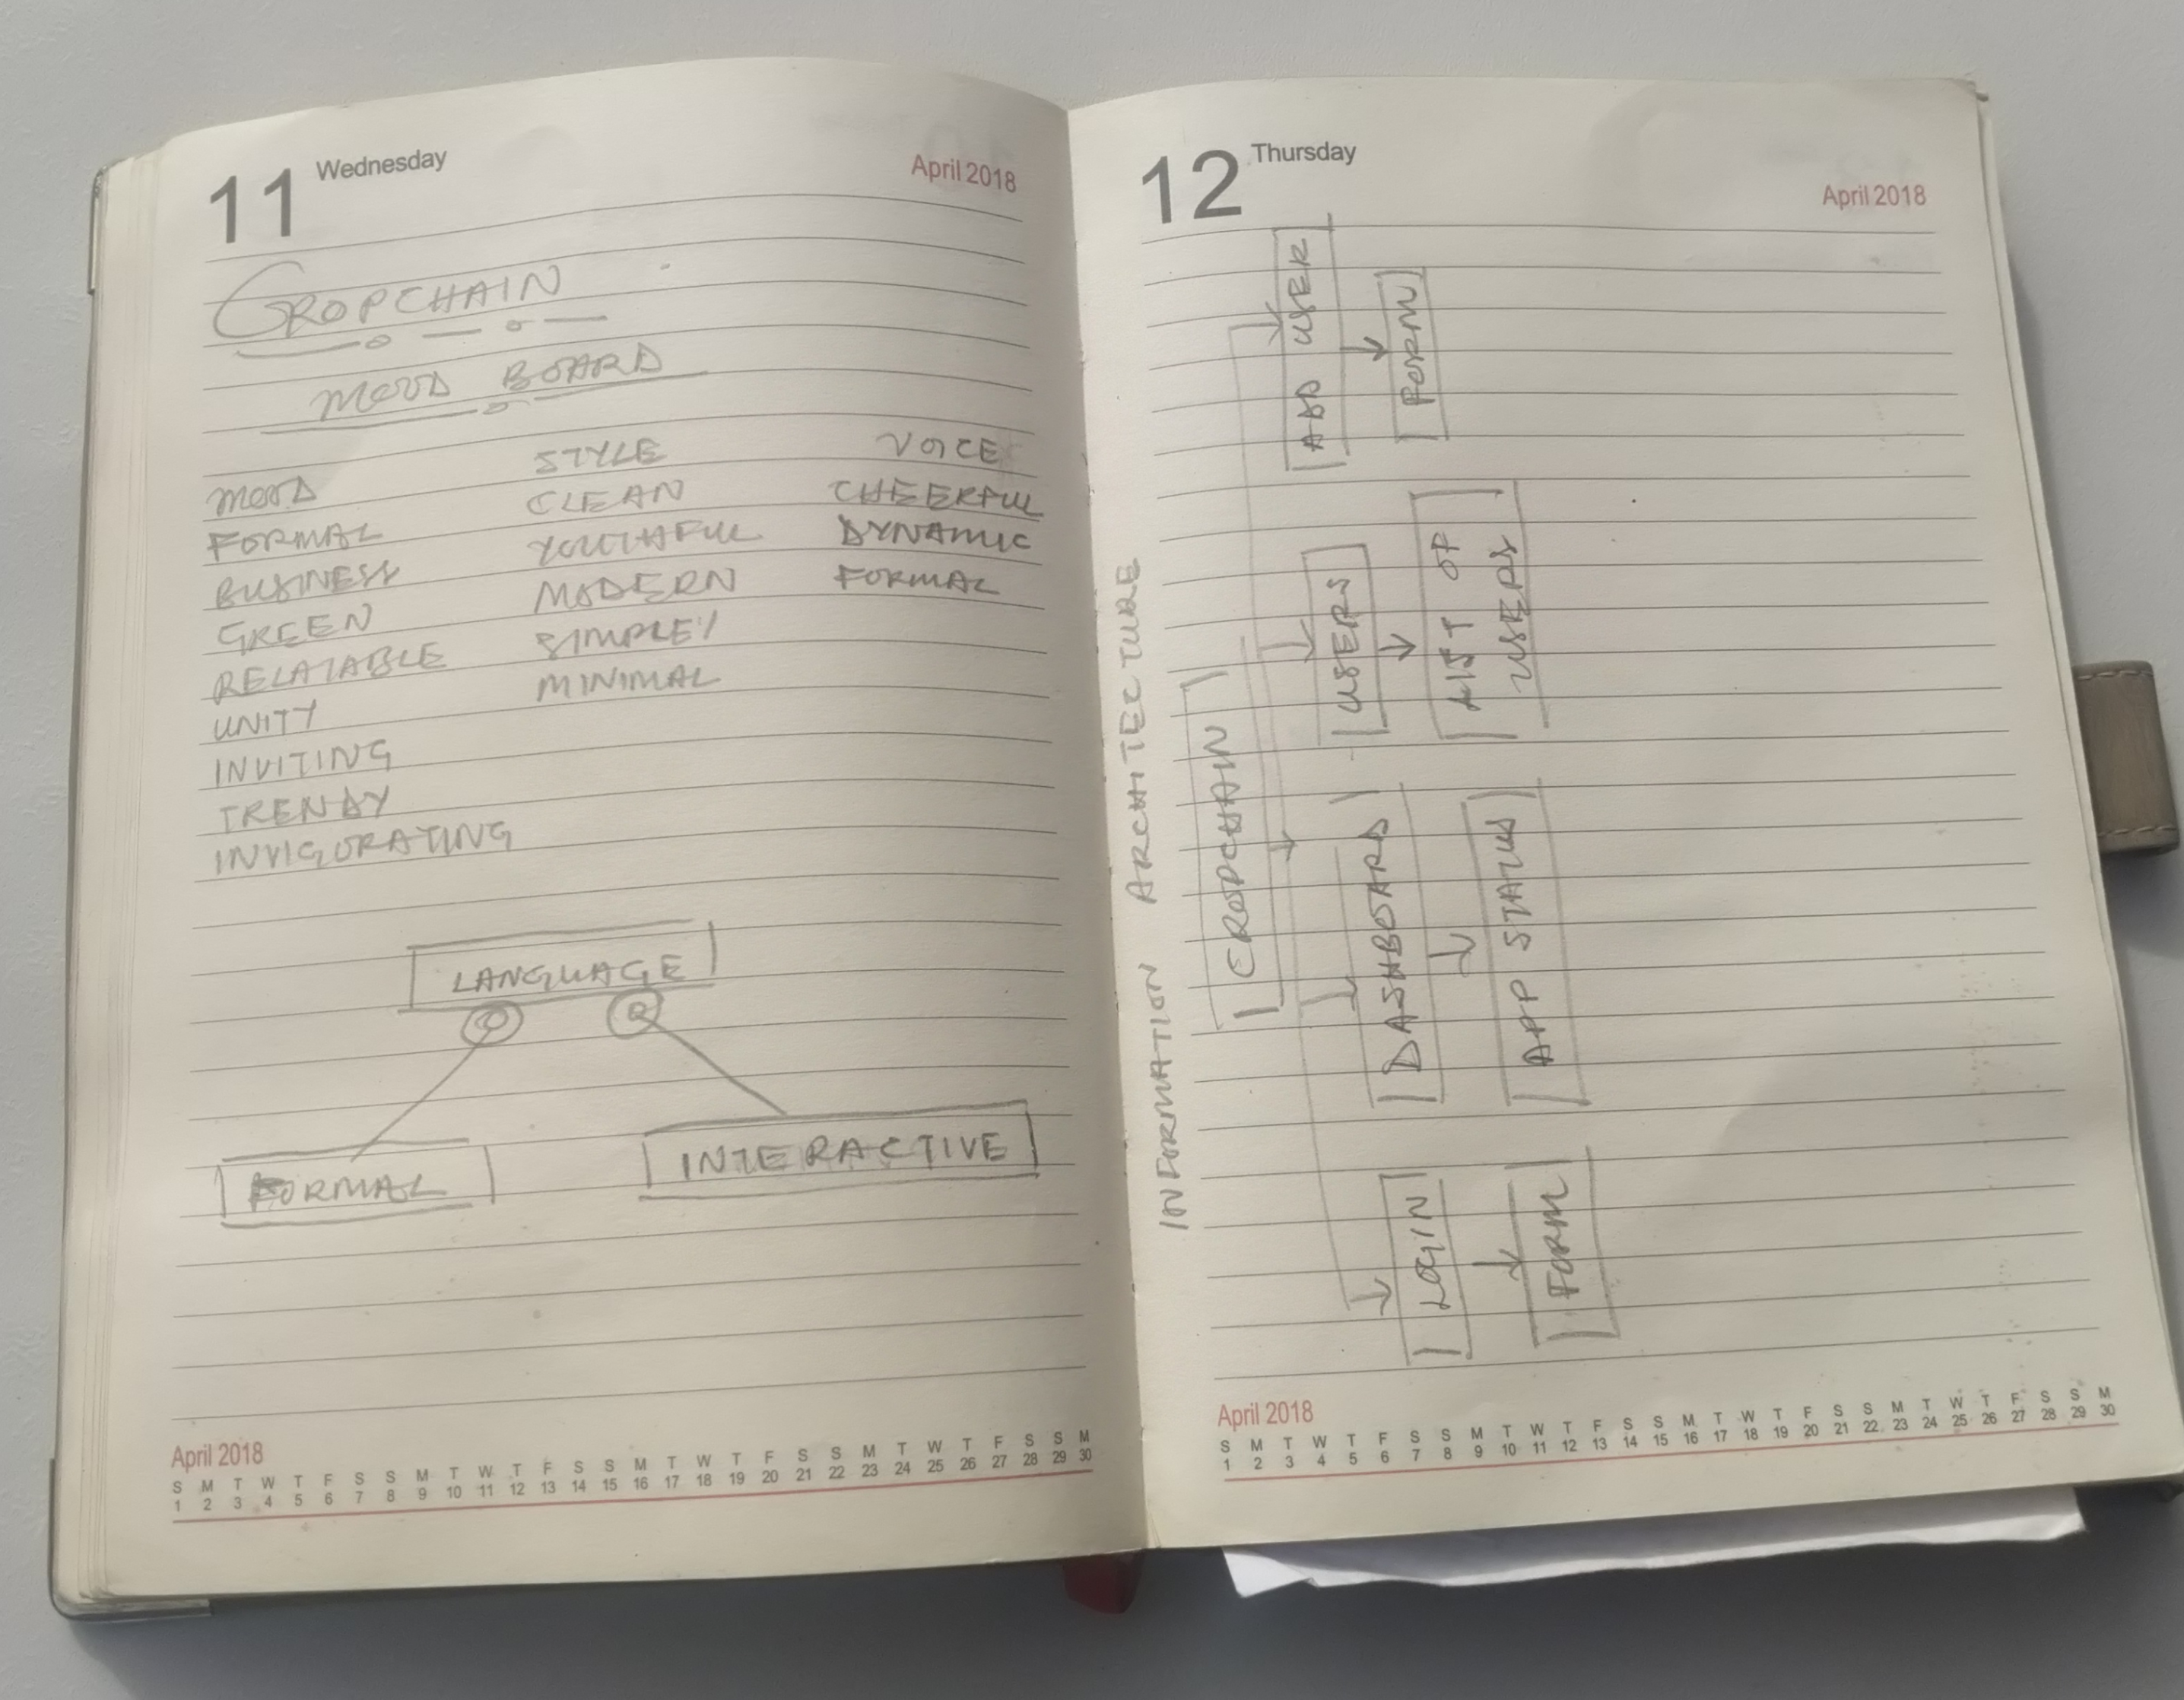 11 Wednesday April 2018
CROPCHAIN
MOOD BOARD
MOOD STYLE VOICE
FORMAL CLEAN CHEERFUL
BUSINESS YOUTHFUL DYNAMIC
GREEN MODERN FORMAL
RELATABLE SIMPLE
UNITY MINIMAL
INVITING
TRENDY
INVIGORATING
LANGUAGE
FORMAL INTERACTIVE
April 2018
S M T W T F S S M T W T F S S M T W T F S S M T W T F S S M
1 2 3 4 5 6 7 8 9 10 11 12 13 14 15 16 17 18 19 20 21 22 23 24 25 26 27 28 29 30
12 Thursday April 2018
INFORMATION ARCHITECTURE
CROPCHAIN
LOGIN DASHBOARD USERS ADD USER
FORM APP STATUS LIST OF USERS FORM
April 2018
S M T W T F S S M T W T F S S M T W T F S S M T W T F S S M
1 2 3 4 5 6 7 8 9 10 11 12 13 14 15 16 17 18 19 20 21 22 23 24 25 26 27 28 29 30